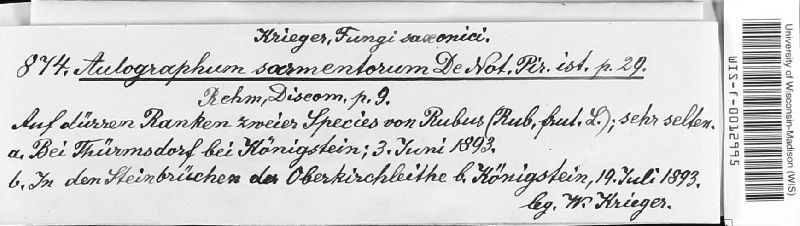 Krieger, Fungi saxonici.
874. Aulographum sarmentorum De Not. Pir. ist. p. 29.
Rehm, Discom. p. 9.
Auf dürren Ranken zweier Species von Rubus (Rub. frut. L.); sehr selten.
a. Bei Thürmsdorf bei Königstein; 3. Juni 1893.
b. In den Steinbrüchen der Oberkirchleithe b. Königstein, 19. Juli 1893.
leg. W. Krieger.
University of Wisconsin-Madison (WIS)
WIS-f-0012995